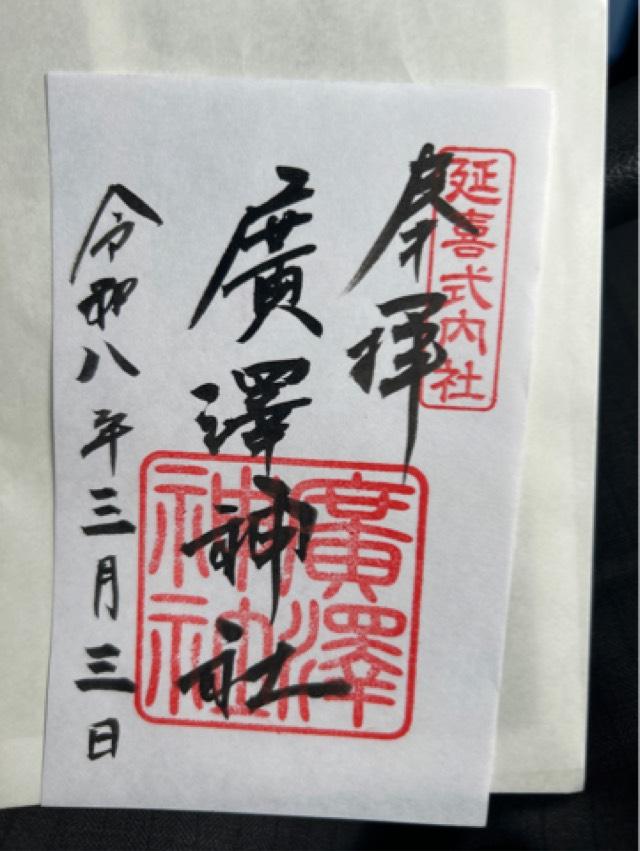 延喜式内社
奉拝
廣澤神社
廣澤
神社
令和八年三月三日